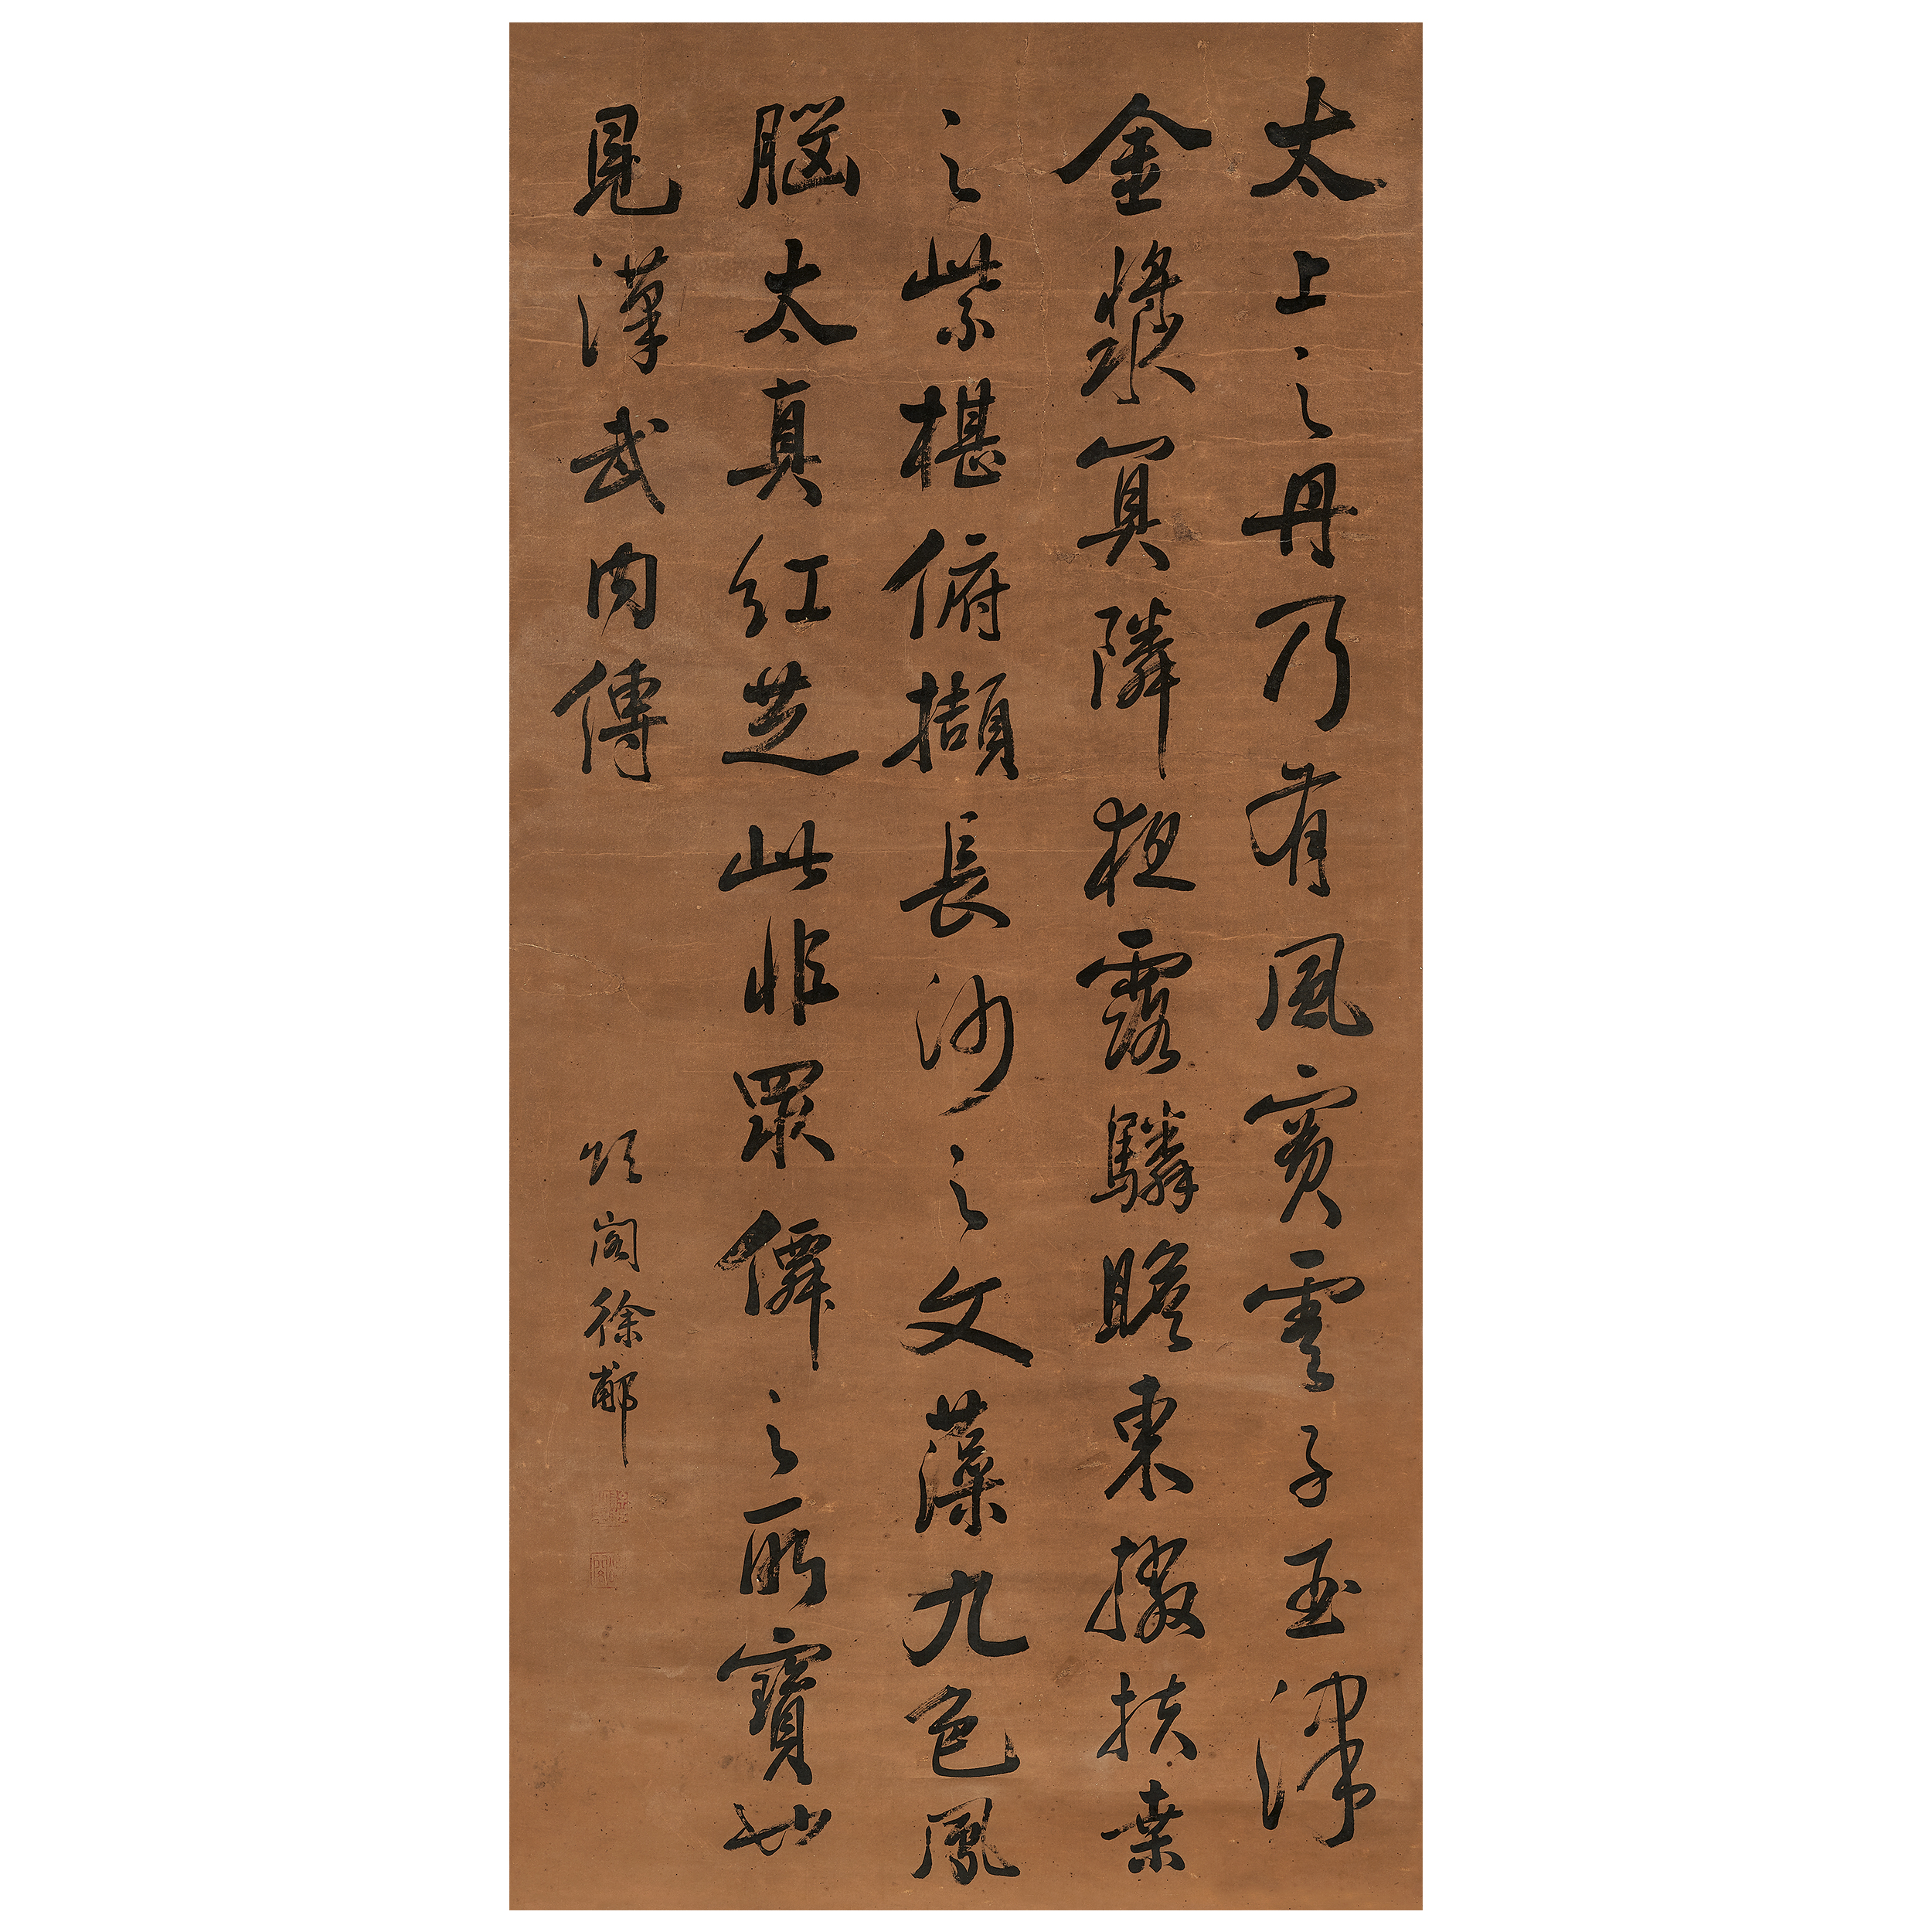 太上之丹乃有風實雲子玉津
金漿冥隣露驎瞻東掇扶桒
之紫椹俯擷長沙之文藻九色鳳
腦太真紅芝此非眾僊之所寶也
見漢武內傳
頌閣徐郙